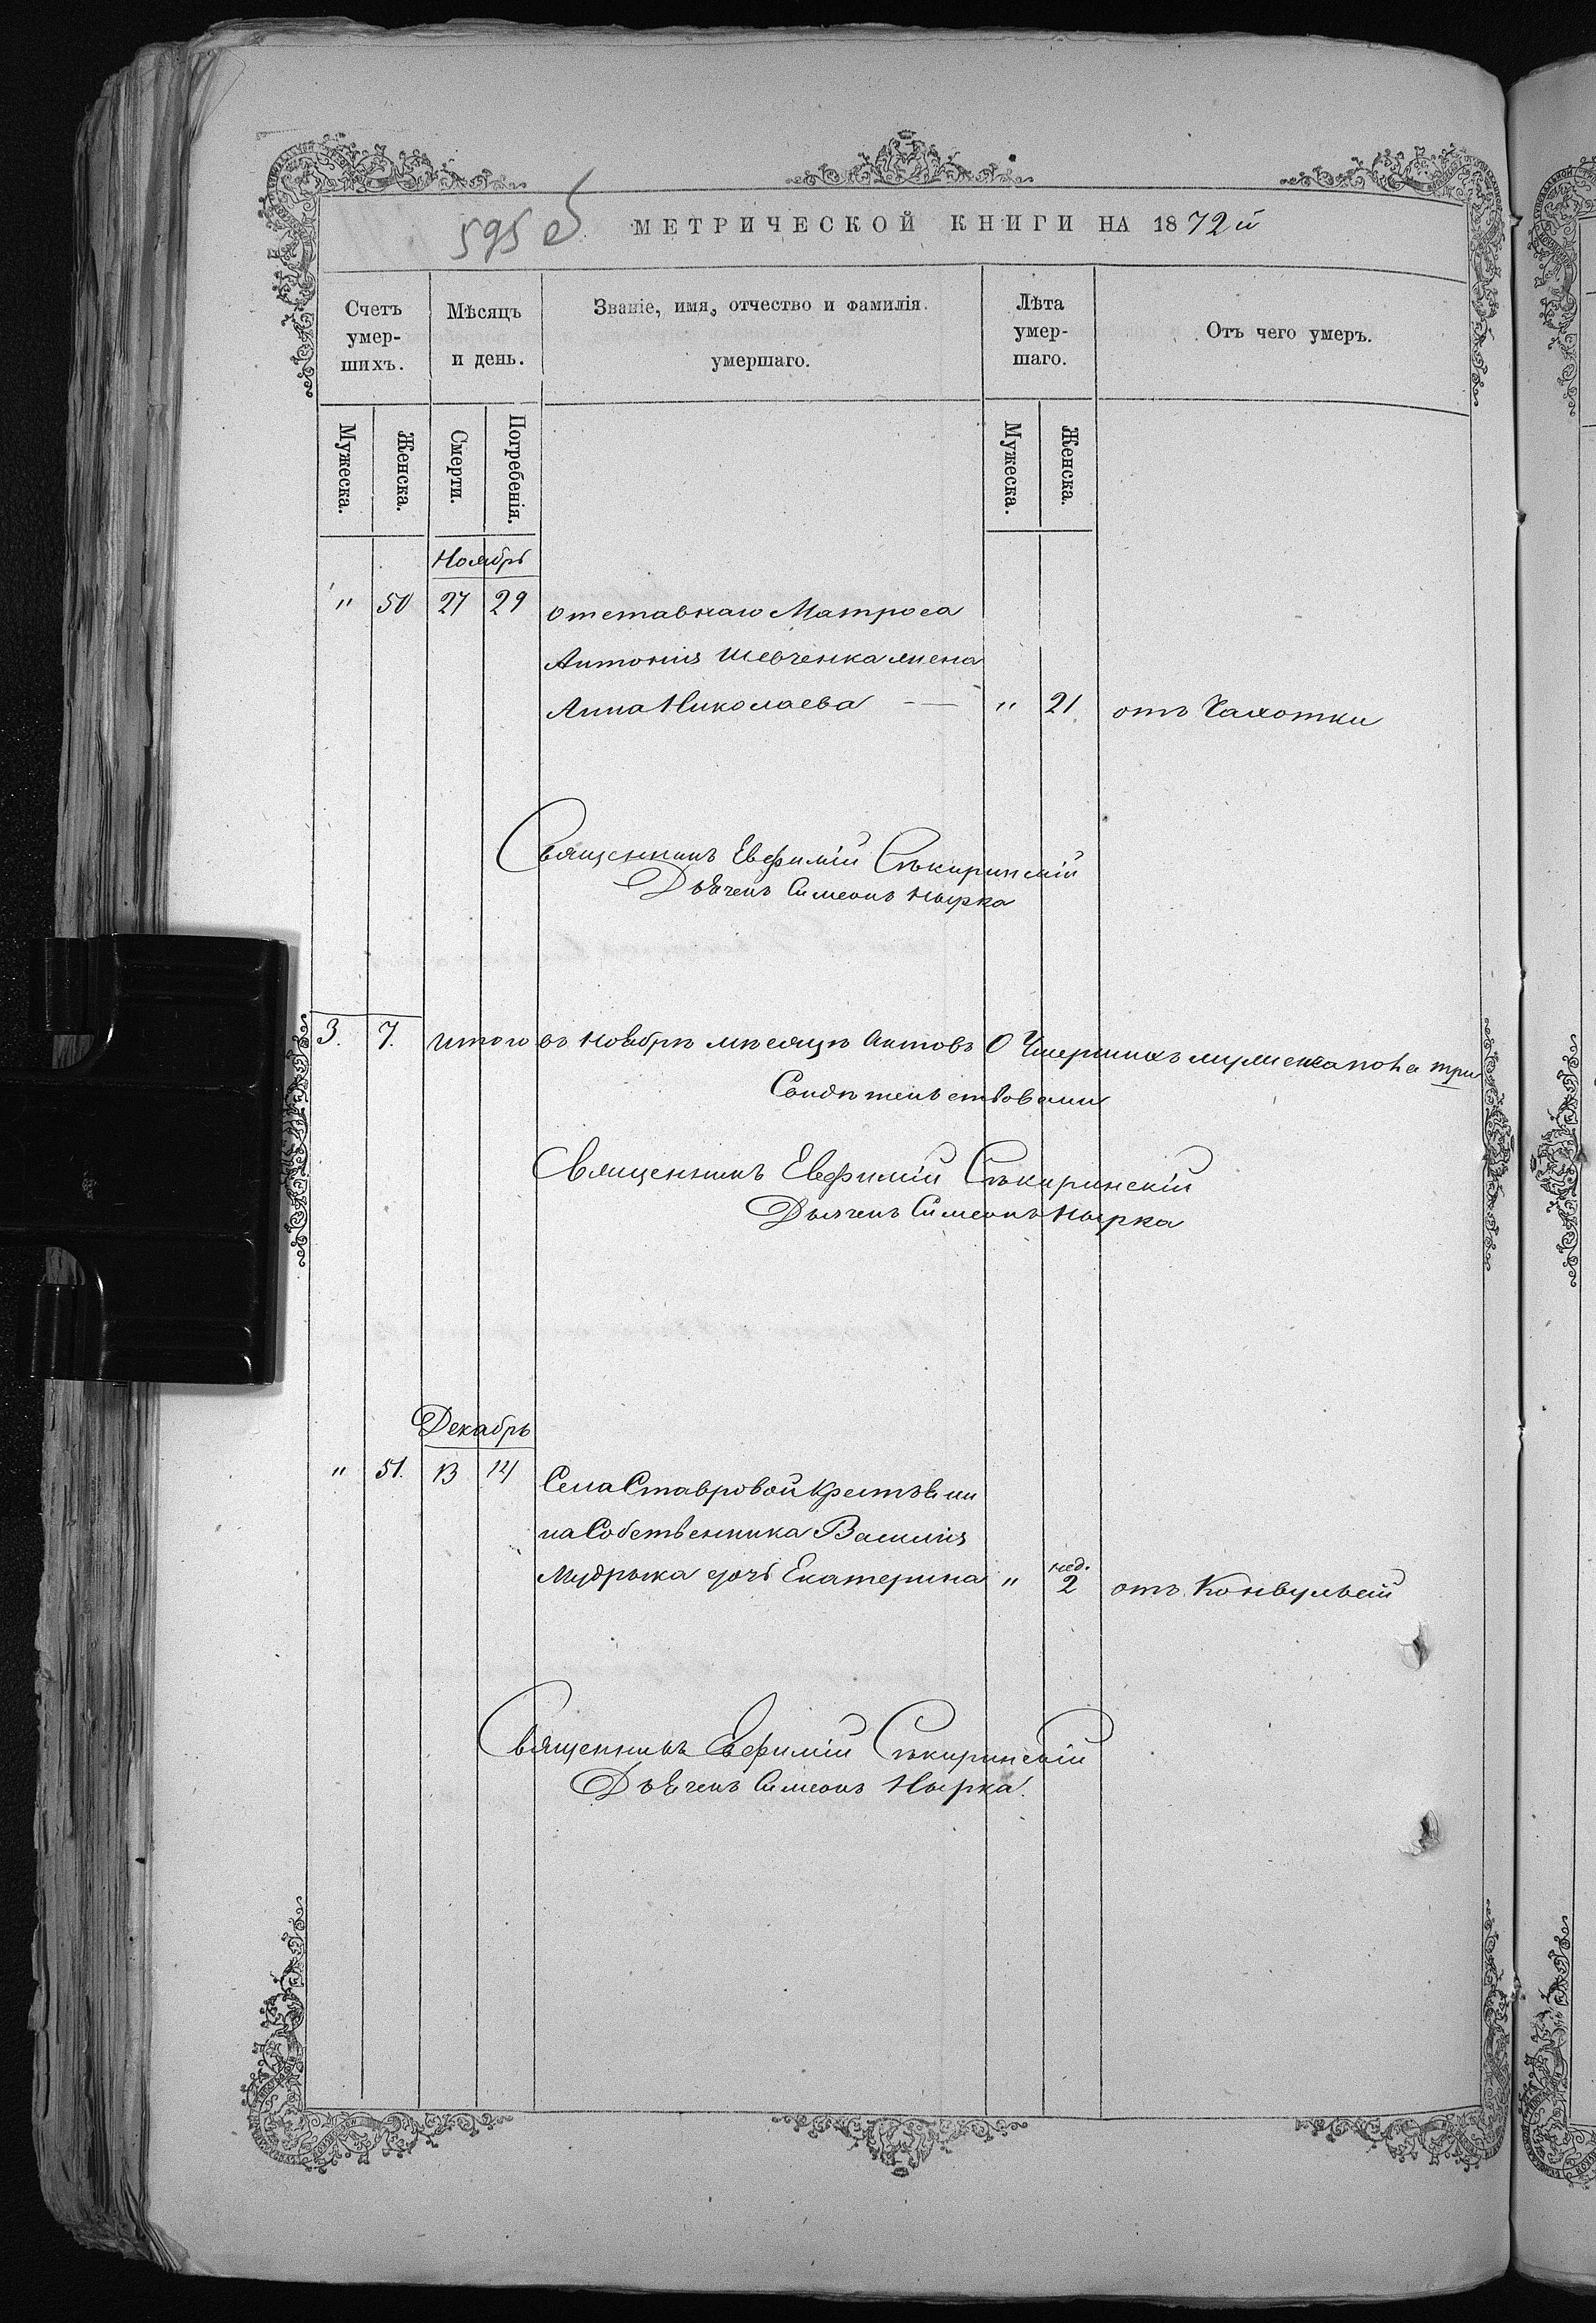 595 об
МЕТРИЧЕСКОЙ КНИГИ НА 1872й
Счетъ умер-шихъ.
Мѣсяцъ и день.
Званіе, имя, отчество и фамилія умершаго.
Лѣта умер-шаго.
Отъ чего умеръ.
Мужеска.
Женска.
Смерти.
Погребенія.
Мужеска.
Женска.
Ноябрь
" 50 27 29 Отставнаго Матроса
Антонія Шевченка жена
Анна Николаева — " 21 отъ Чахотки
Священникъ Евфимій Сѣкиринскій
Дьячекъ Симеонъ Нырка
3. 7. Итого въ Ноябрѣ мѣсяцѣ Актовъ О Умершихъ мужеска пола три
Свидѣтельствовали
Священникъ Евфимій Сѣкиринскій
Дьячекъ Симеонъ Нырка
Декабрь
" 51. 13 14 Села Ставровой Крестьяни
на Собственника Василія
Мудрыка дочь Екатерина " нед. 2 отъ Конвульсій
Священникъ Евфимій Сѣкиринскій
Дьячекъ Симеонъ Нырка.